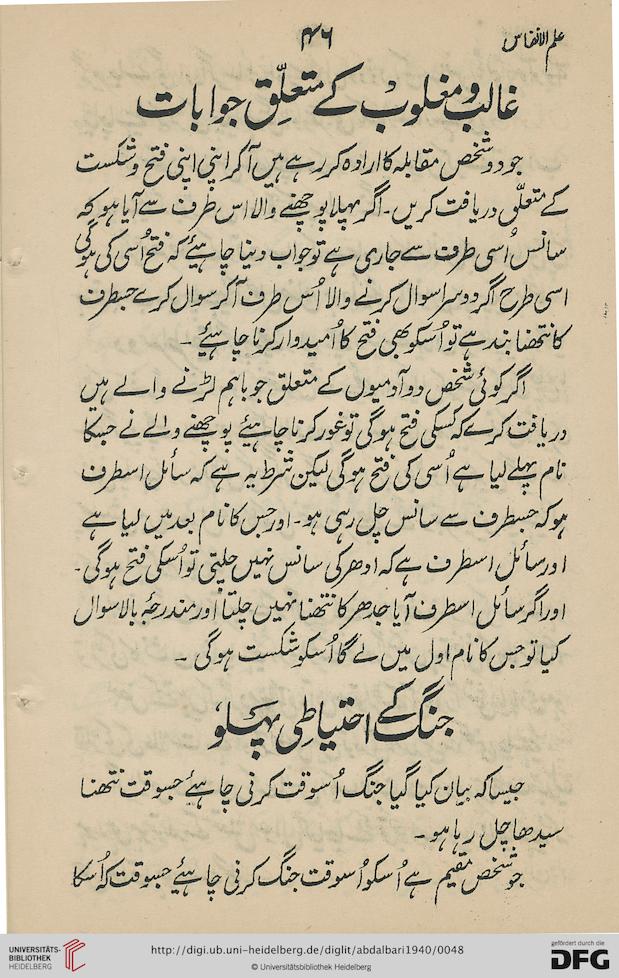 علم الانفاس
۴۶
غالب و مغلوب کے متعلّق جوابات
جو دو شخص مقابلہ کا ارادہ کر رہے ہیں آکر اپنی اپنی فتح و شکست
کے متعلّق دریافت کریں۔ اگر پہلا پوچھنے والا اس طرف سے آیا ہو کہ
سانس اُسی طرف سے جاری ہے تو جواب دینا چاہیئے کہ فتح اُسی کی ہوگی
اسی طرح اگر دوسرا سوال کرنے والا اُس طرف آکر سوال کرے جسطرف
کا نتھنا بند ہے تو اُسکو بھی فتح کا اُمیدوار کرنا چاہیئے ۔
اگر کوئی شخص دو آدمیوں کے متعلق جو باہم لڑنے والے ہیں
دریافت کرے کہ کسکی فتح ہوگی تو غور کرنا چاہیئے پوچھنے والے نے جسکا
نام پہلے لیا ہے اُسی کی فتح ہوگی لیکن شرط یہ ہے کہ سائل اسطرف
ہو کہ جسطرف سے سانس چل رہی ہو۔ اور جس کا نام بعد میں لیا ہے
اور سائل اسطرف ہے کہ ادھر کی سانس نہیں چلتی تو اُسکی فتح ہوگی۔
اور اگر سائل اسطرف آیا جدھر کا نتھنا نہیں چلتا اور مندرجۂ بالا سوال
کیا تو جس کا نام اول میں لے گا اُسکو شکست ہوگی ۔
جنگ کے احتیاطی پہلو
جیسا کہ بیان کیا گیا جنگ اُسوقت کرنی چاہیئے جسوقت نتھنا
سیدھا چل رہا ہو ۔
جو شخص مقیم ہے اُسکو اُسوقت جنگ کرنی چاہیئے جسوقت کہ اُسکا
UNIVERSITÄTS-
BIBLIOTHEK
HEIDELBERG
http://digi.ub.uni-heidelberg.de/diglit/abdalbari1940/0048
© Universitätsbibliothek Heidelberg
gefördert durch die
DFG